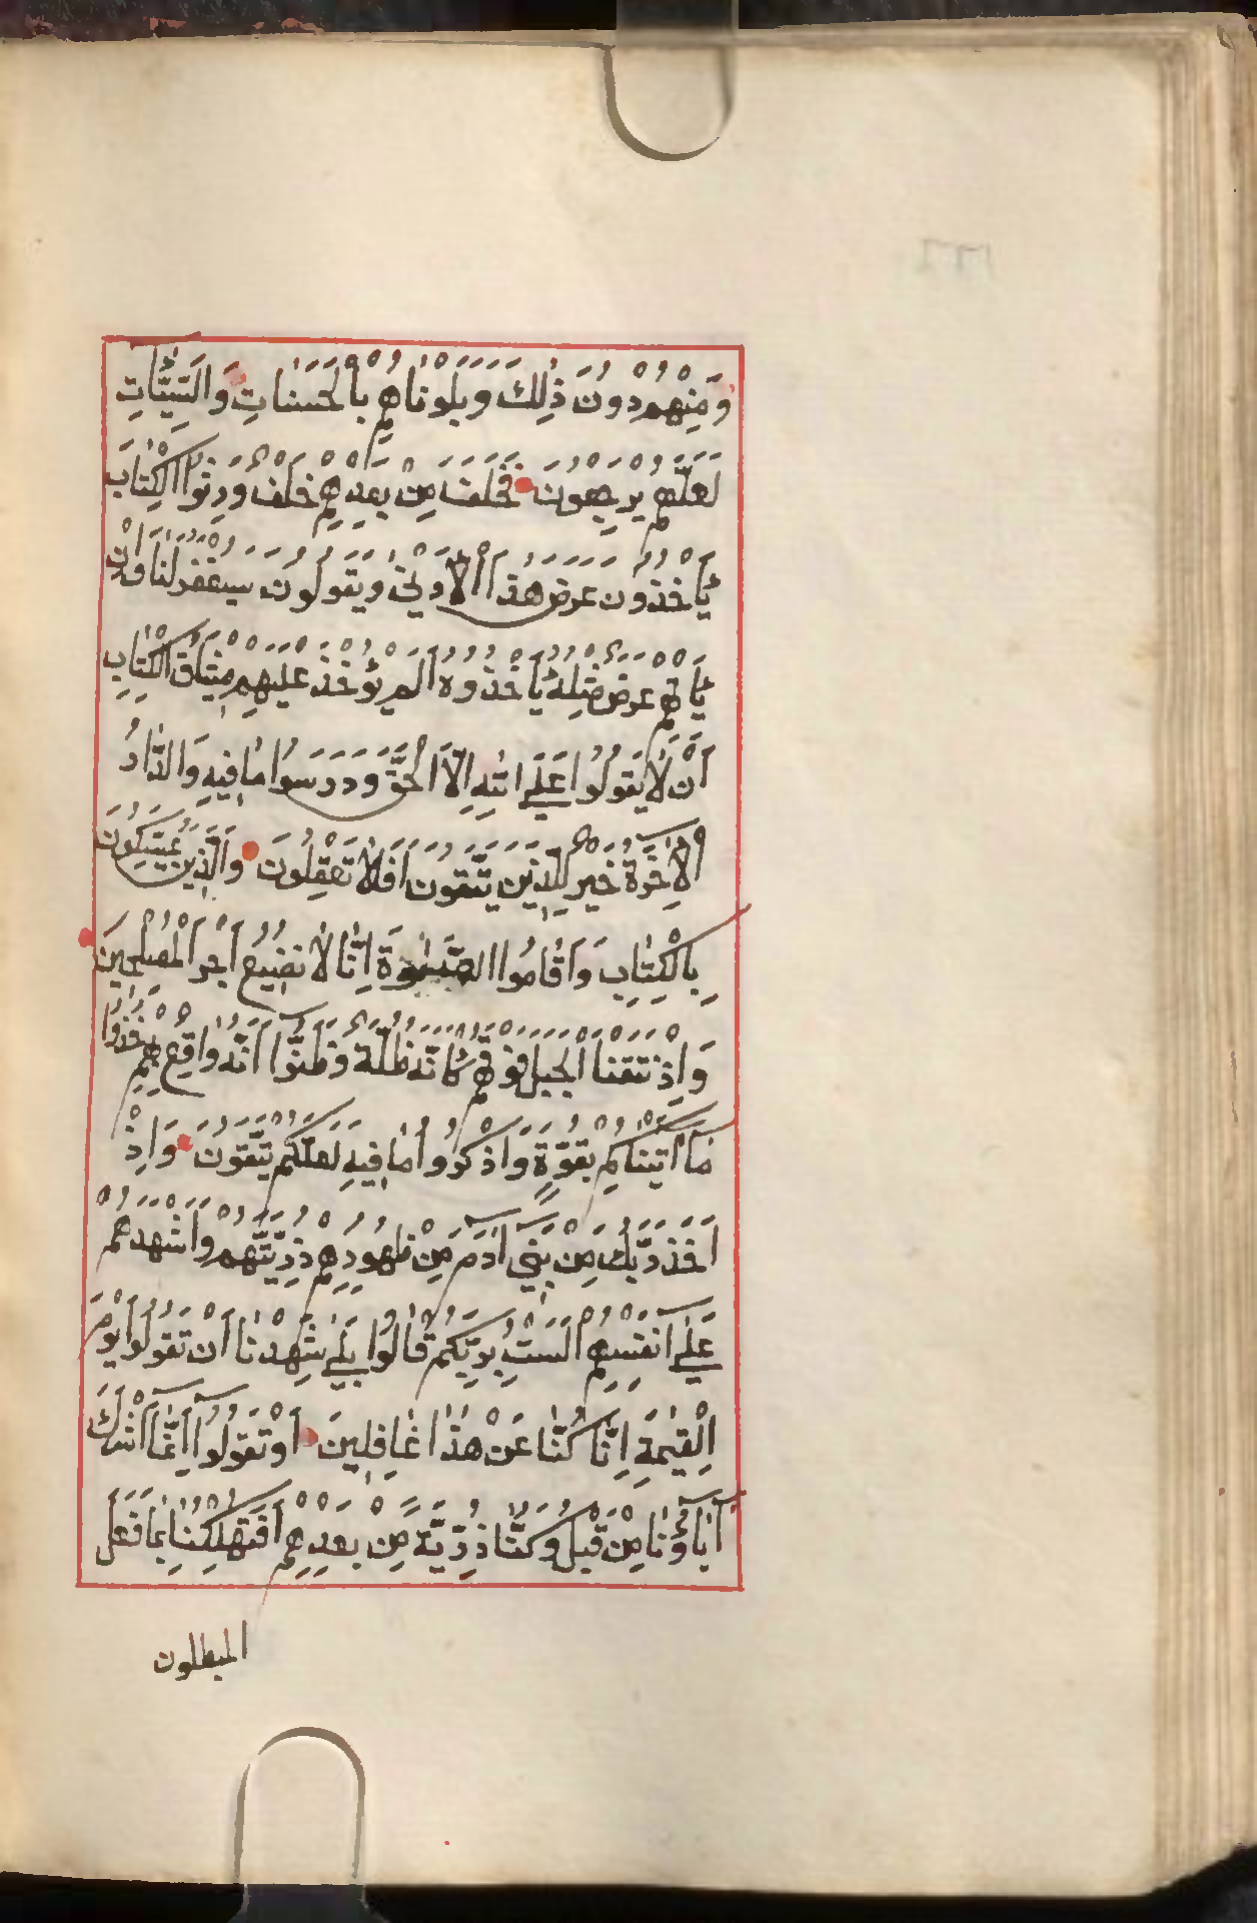 وَمِنْهُمْ دُونَ ذٰلِكَ وَبَلَوْنَاهُمْ بِالْحَسَنَاتِ وَالسَّيِّئَاتِ
لَعَلَّهُمْ يَرْجِعُونَ فَخَلَفَ مِنْ بَعْدِهِمْ خَلْفٌ وَرِثُوا الْكِتَابَ
يَأْخُذُونَ عَرَضَ هٰذَا الْأَدْنٰى وَيَقُولُونَ سَيُغْفَرُ لَنَا وَاِنْ
يَأْتِهِمْ عَرَضٌ مِثْلُهُ يَأْخُذُوهُ اَلَمْ يُؤْخَذْ عَلَيْهِمْ مِيثَاقُ الْكِتَابِ
اَنْ لَا يَقُولُوا عَلَى اللّٰهِ اِلَّا الْحَقَّ وَدَرَسُوا مَا فِيهِ وَالدَّارُ
الْاٰخِرَةُ خَيْرٌ لِلَّذِينَ يَتَّقُونَ اَفَلَا تَعْقِلُونَ وَالَّذِينَ يُمَسِّكُونَ
بِالْكِتَابِ وَاَقَامُوا الصَّلٰوةَ اِنَّا لَا نُضِيعُ اَجْرَ الْمُصْلِحِينَ
وَاِذْ نَتَقْنَا الْجَبَلَ فَوْقَهُمْ كَاَنَّهُ ظُلَّةٌ وَظَنُّوا اَنَّهُ وَاقِعٌ بِهِمْ خُذُوا
مَا اٰتَيْنَاكُمْ بِقُوَّةٍ وَاذْكُرُوا مَا فِيهِ لَعَلَّكُمْ تَتَّقُونَ وَاِذْ
اَخَذَ رَبُّكَ مِنْ بَنِي اٰدَمَ مِنْ ظُهُورِهِمْ ذُرِّيَّتَهُمْ وَاَشْهَدَهُمْ
عَلٰى اَنْفُسِهِمْ اَلَسْتُ بِرَبِّكُمْ قَالُوا بَلٰى شَهِدْنَا اَنْ تَقُولُوا يَوْمَ
الْقِيٰمَةِ اِنَّا كُنَّا عَنْ هٰذَا غَافِلِينَ اَوْ تَقُولُوا اِنَّمَا اَشْرَكَ
اٰبَاؤُنَا مِنْ قَبْلُ وَكُنَّا ذُرِّيَّةً مِنْ بَعْدِهِمْ اَفَتُهْلِكُنَا بِمَا فَعَلَ
المبطلون